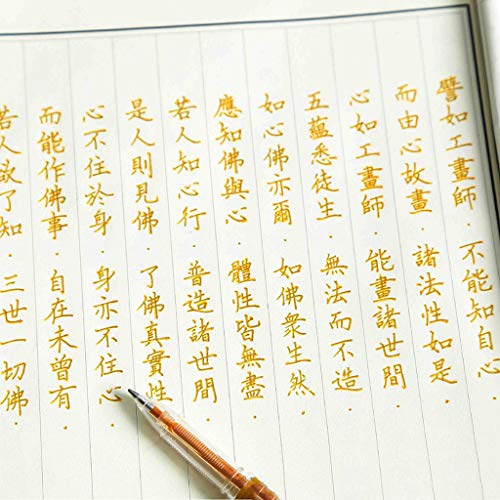 譬如工畫師·不能知自心·
而由心故畫·諸法性如是·
心如工畫師·能畫諸世間·
五蘊悉徒生·無法而不造·
如心佛亦爾·如佛衆生然·
應知佛與心·體性皆無盡·
若人知心行·普造諸世間·
是人則見佛·了佛真實性·
心不住於身·身亦不住心·
而能作佛事·自在未曾有·
若人欲了知·三世一切佛·